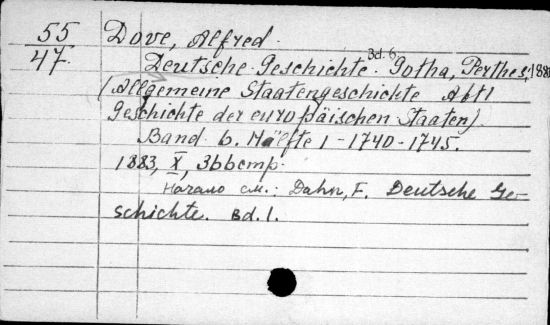 55 Dove, Alfred.
47. Deutsche Geschichte. Bd. 6. Gotha, Perthes, 188
(Allgemeine Staatengeschichte Abt 1
Geschichte der europäischen Staaten).
Band 6. Hälfte 1 - 1740 - 1745.
1883, X, 366 стр.
Начало см.: Dahn, F. Deutsche Ge-
schichte. Bd. 1.